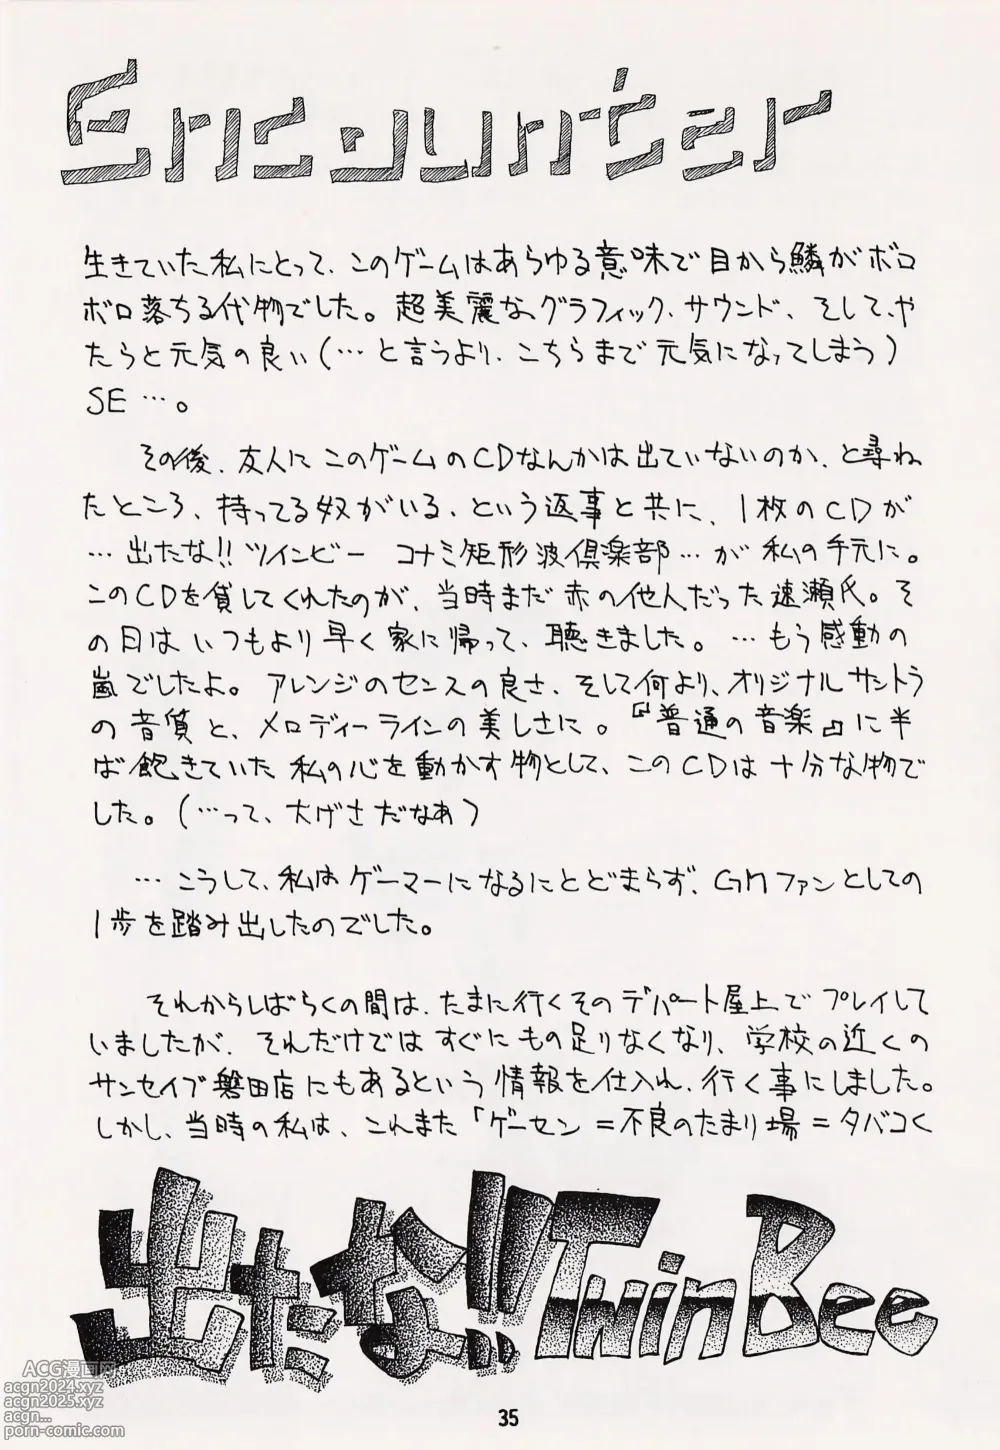 Encounter
生きていた私にとって、このゲームはあらゆる意味で目から鱗がボロ
ボロ落ちる代物でした。超美麗なグラフィック、サウンド、そして、や
たらと元気の良い(…と言うより、こちらまで元気になってしまう)
SE…。
その後、友人にこのゲームのCDなんかは出ていないのか、と尋ね
たところ、持ってる奴がいる、という返事と共に、1枚のCDが
…出たな!!ツインビー コナミ矩形波倶楽部…が私の手元に。
このCDを貸してくれたのが、当時まだ赤の他人だった速瀬氏。そ
の日はいつもより早く家に帰って、聴きました。…もう感動の
嵐でしたよ。アレンジのセンスの良さ、そして何より、オリジナルサントラ
の音質と、メロディーラインの美しさに。『普通の音楽』に半
ば飽きていた私の心を動かす物として、このCDは十分な物で
した。(…って、大げさだなあ)
…こうして、私はゲーマーになるにとどまらず、GMファンとしての
1歩を踏み出したのでした。
それからしばらくの間は、たまに行くそのデパート屋上でプレイして
いましたが、それだけではすぐにもの足りなくなり、学校の近くの
サンセイブ磐田店にもあるという情報を仕入れ、行く事にしました。
しかし、当時の私は、これまた「ゲーセン=不良のたまり場=タバコく
出たな!!TwinBee
ACG漫画网
acgn2024.xyz
acgn2025.xyz
acgn...
porn-comic.com
35